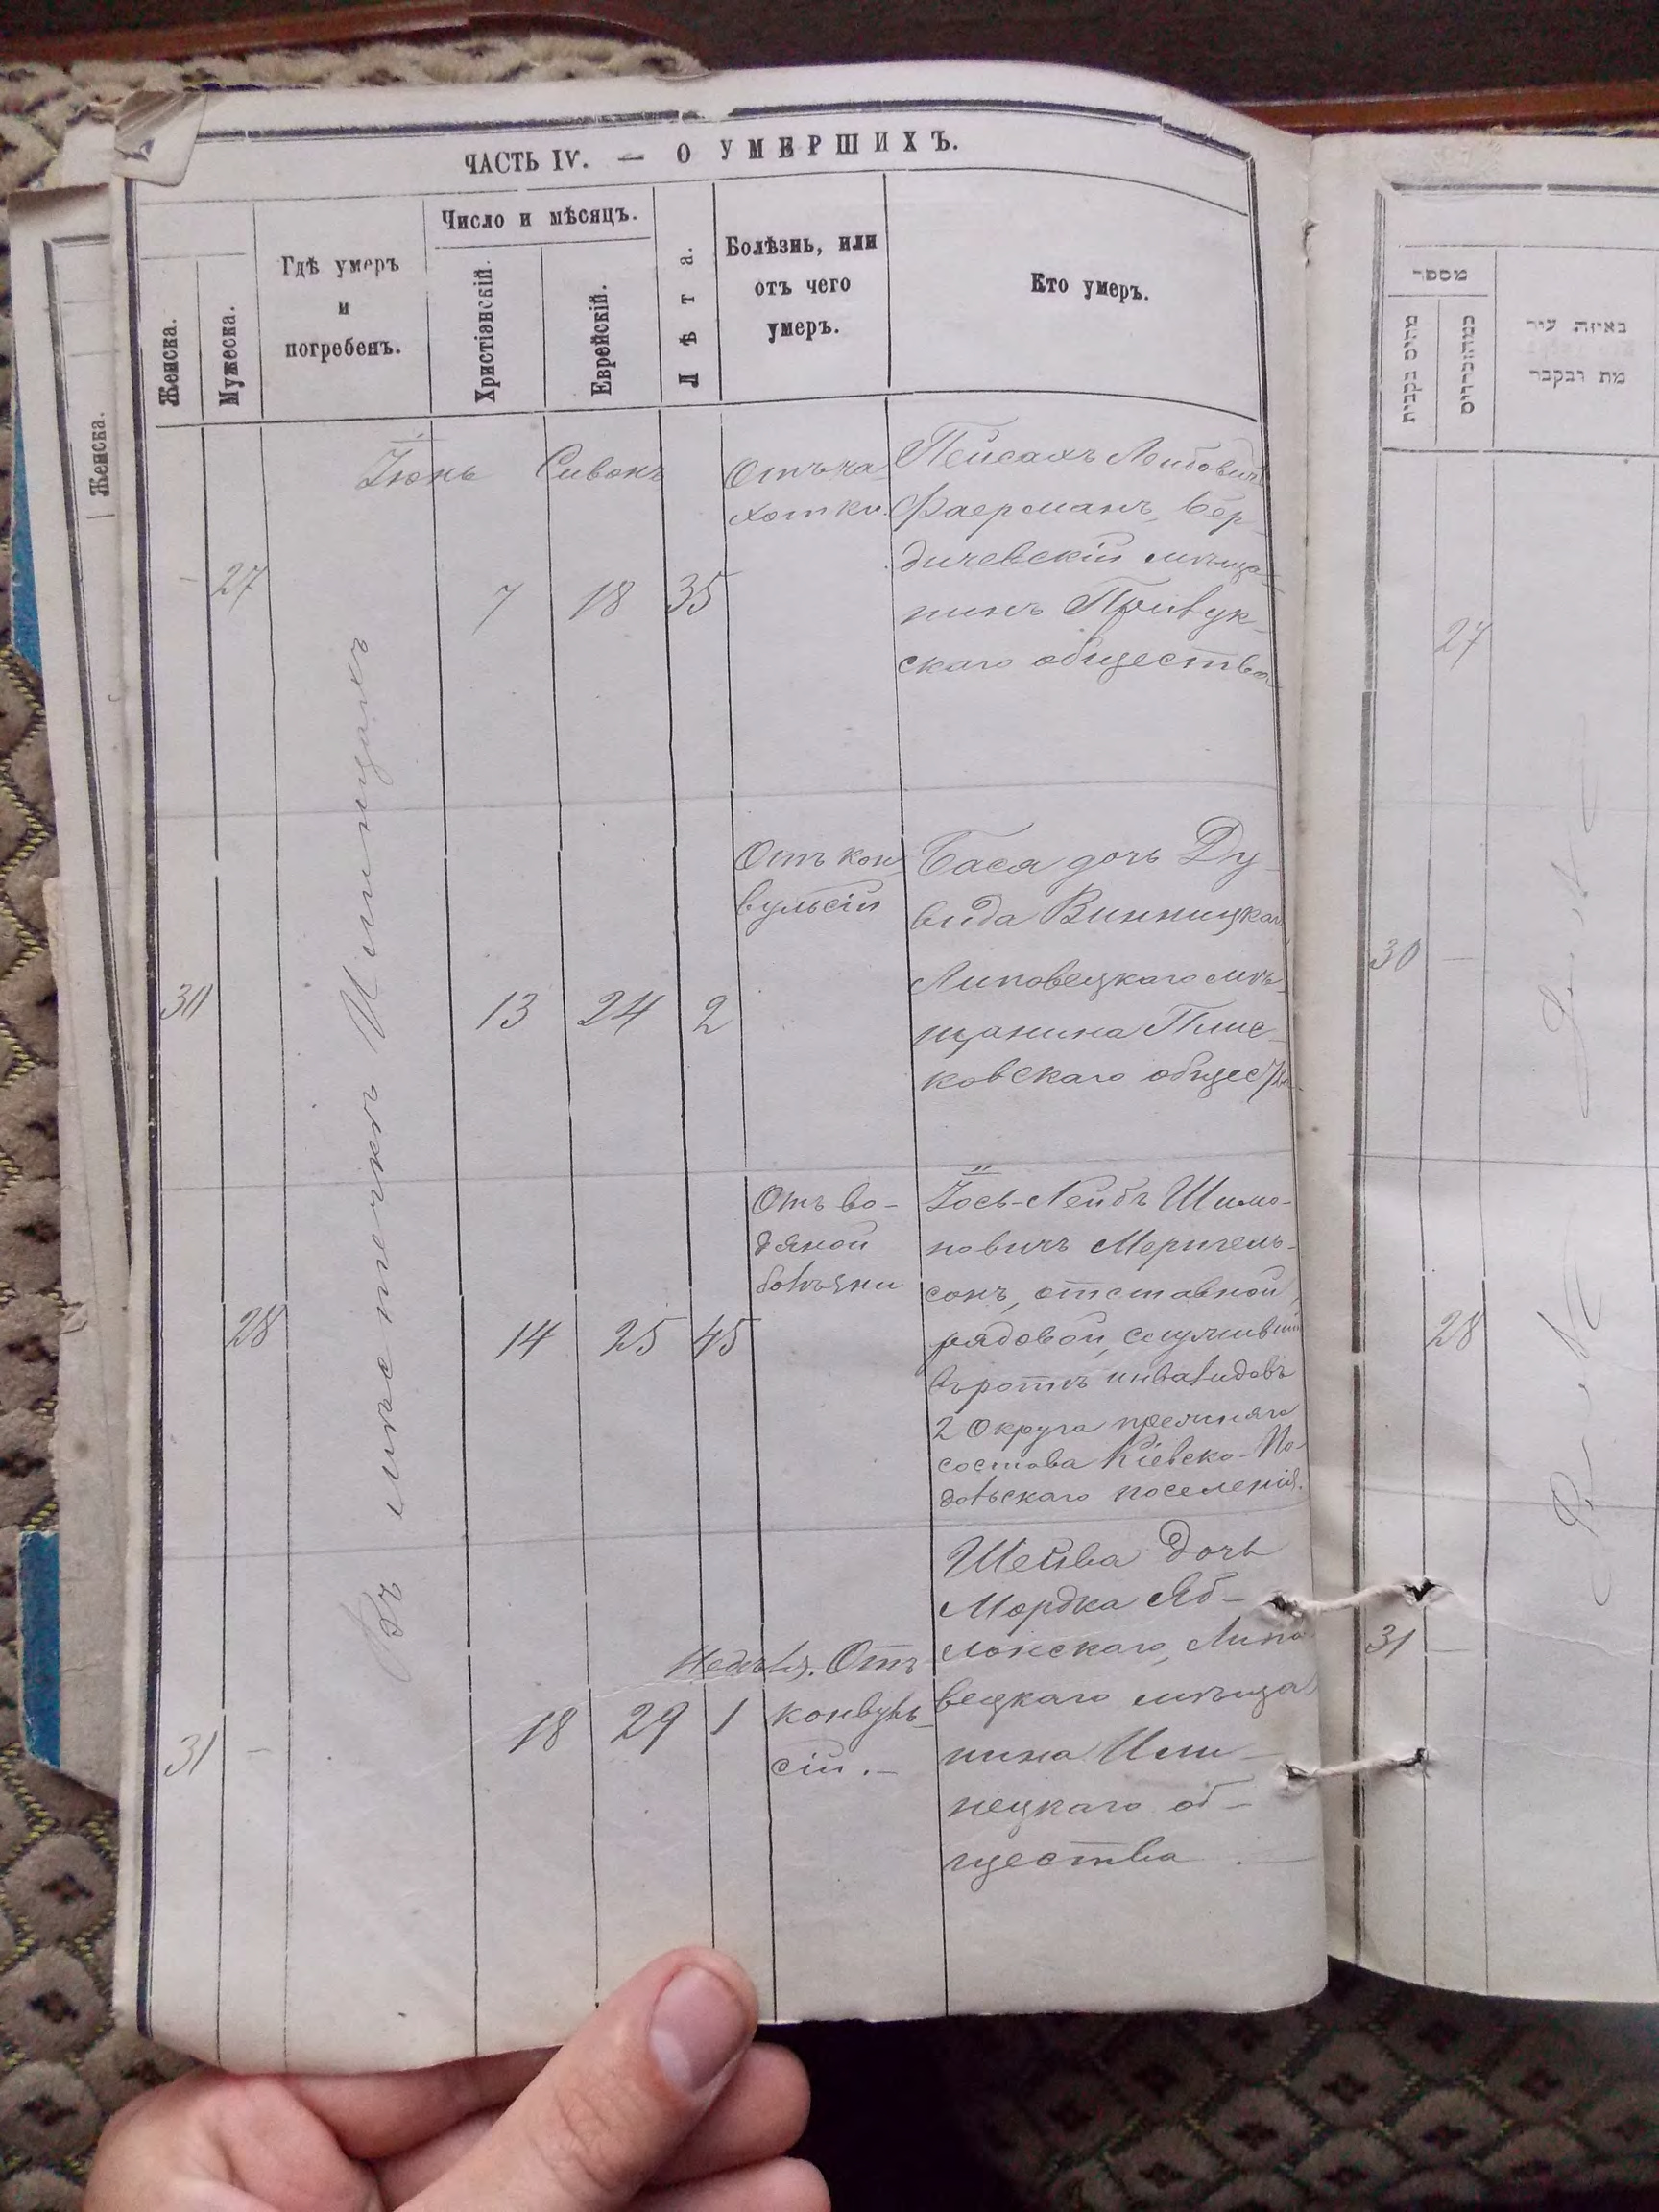 ЧАСТЬ IV. — О УМЕРШИХЪ.
Женска.
Мужеска.
Гдѣ умеръ
и
погребенъ.
Число и мѣсяцъ.
Христіанскій.
Еврейскій.
Лѣта.
Болѣзнь, или
отъ чего
умеръ.
Кто умеръ.
Въ мѣстечкѣ Илинцахъ
Іюнь Сивонъ
- 27
7 18 35
Отъ ча-
хотки.
Пейсахъ Лейбовичъ
Фаерманъ, Бер-
дичевскій мѣща-
нинъ
скаго общества
30
13 24 2
Отъ кон
вульсіи
Бася дочь Ду-
вида Винницкаго
Липовецкаго мѣ-
щанина Плис-
ковскаго общест
28
14 25 45
Отъ во-
дяной
болѣзни
Іось-Лейбъ Шимо-
новичъ
сонъ, отставной
рядовой, служивши
въ ротѣ инвалидовъ
2 Округа
состава Кіевско-По-
дольскаго поселенія.
31 -
18 29 1
Недѣля. Отъ
конвуль-
сіи.-
Шейва дочь
Мордка Яб-
лонскаго, Липо
вецкаго мѣща
нина Или-
нецкаго об-
щества. —
Женска.
מספר
נקבות
באיזה עיר
מת ונקבר
27
30 —
28
31 —